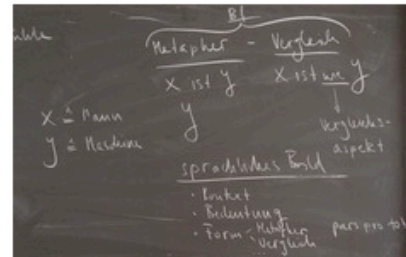 Bl
Metapher - Vergleich
X ist Y X ist wie Y
Y
X ≙ Mann
Y ≙ Maschine
Vergleichs-
aspekt
sprachliches Bild
• Kontext
• Bedeutung
• Form < Metapher
Vergleich
pars pro tot